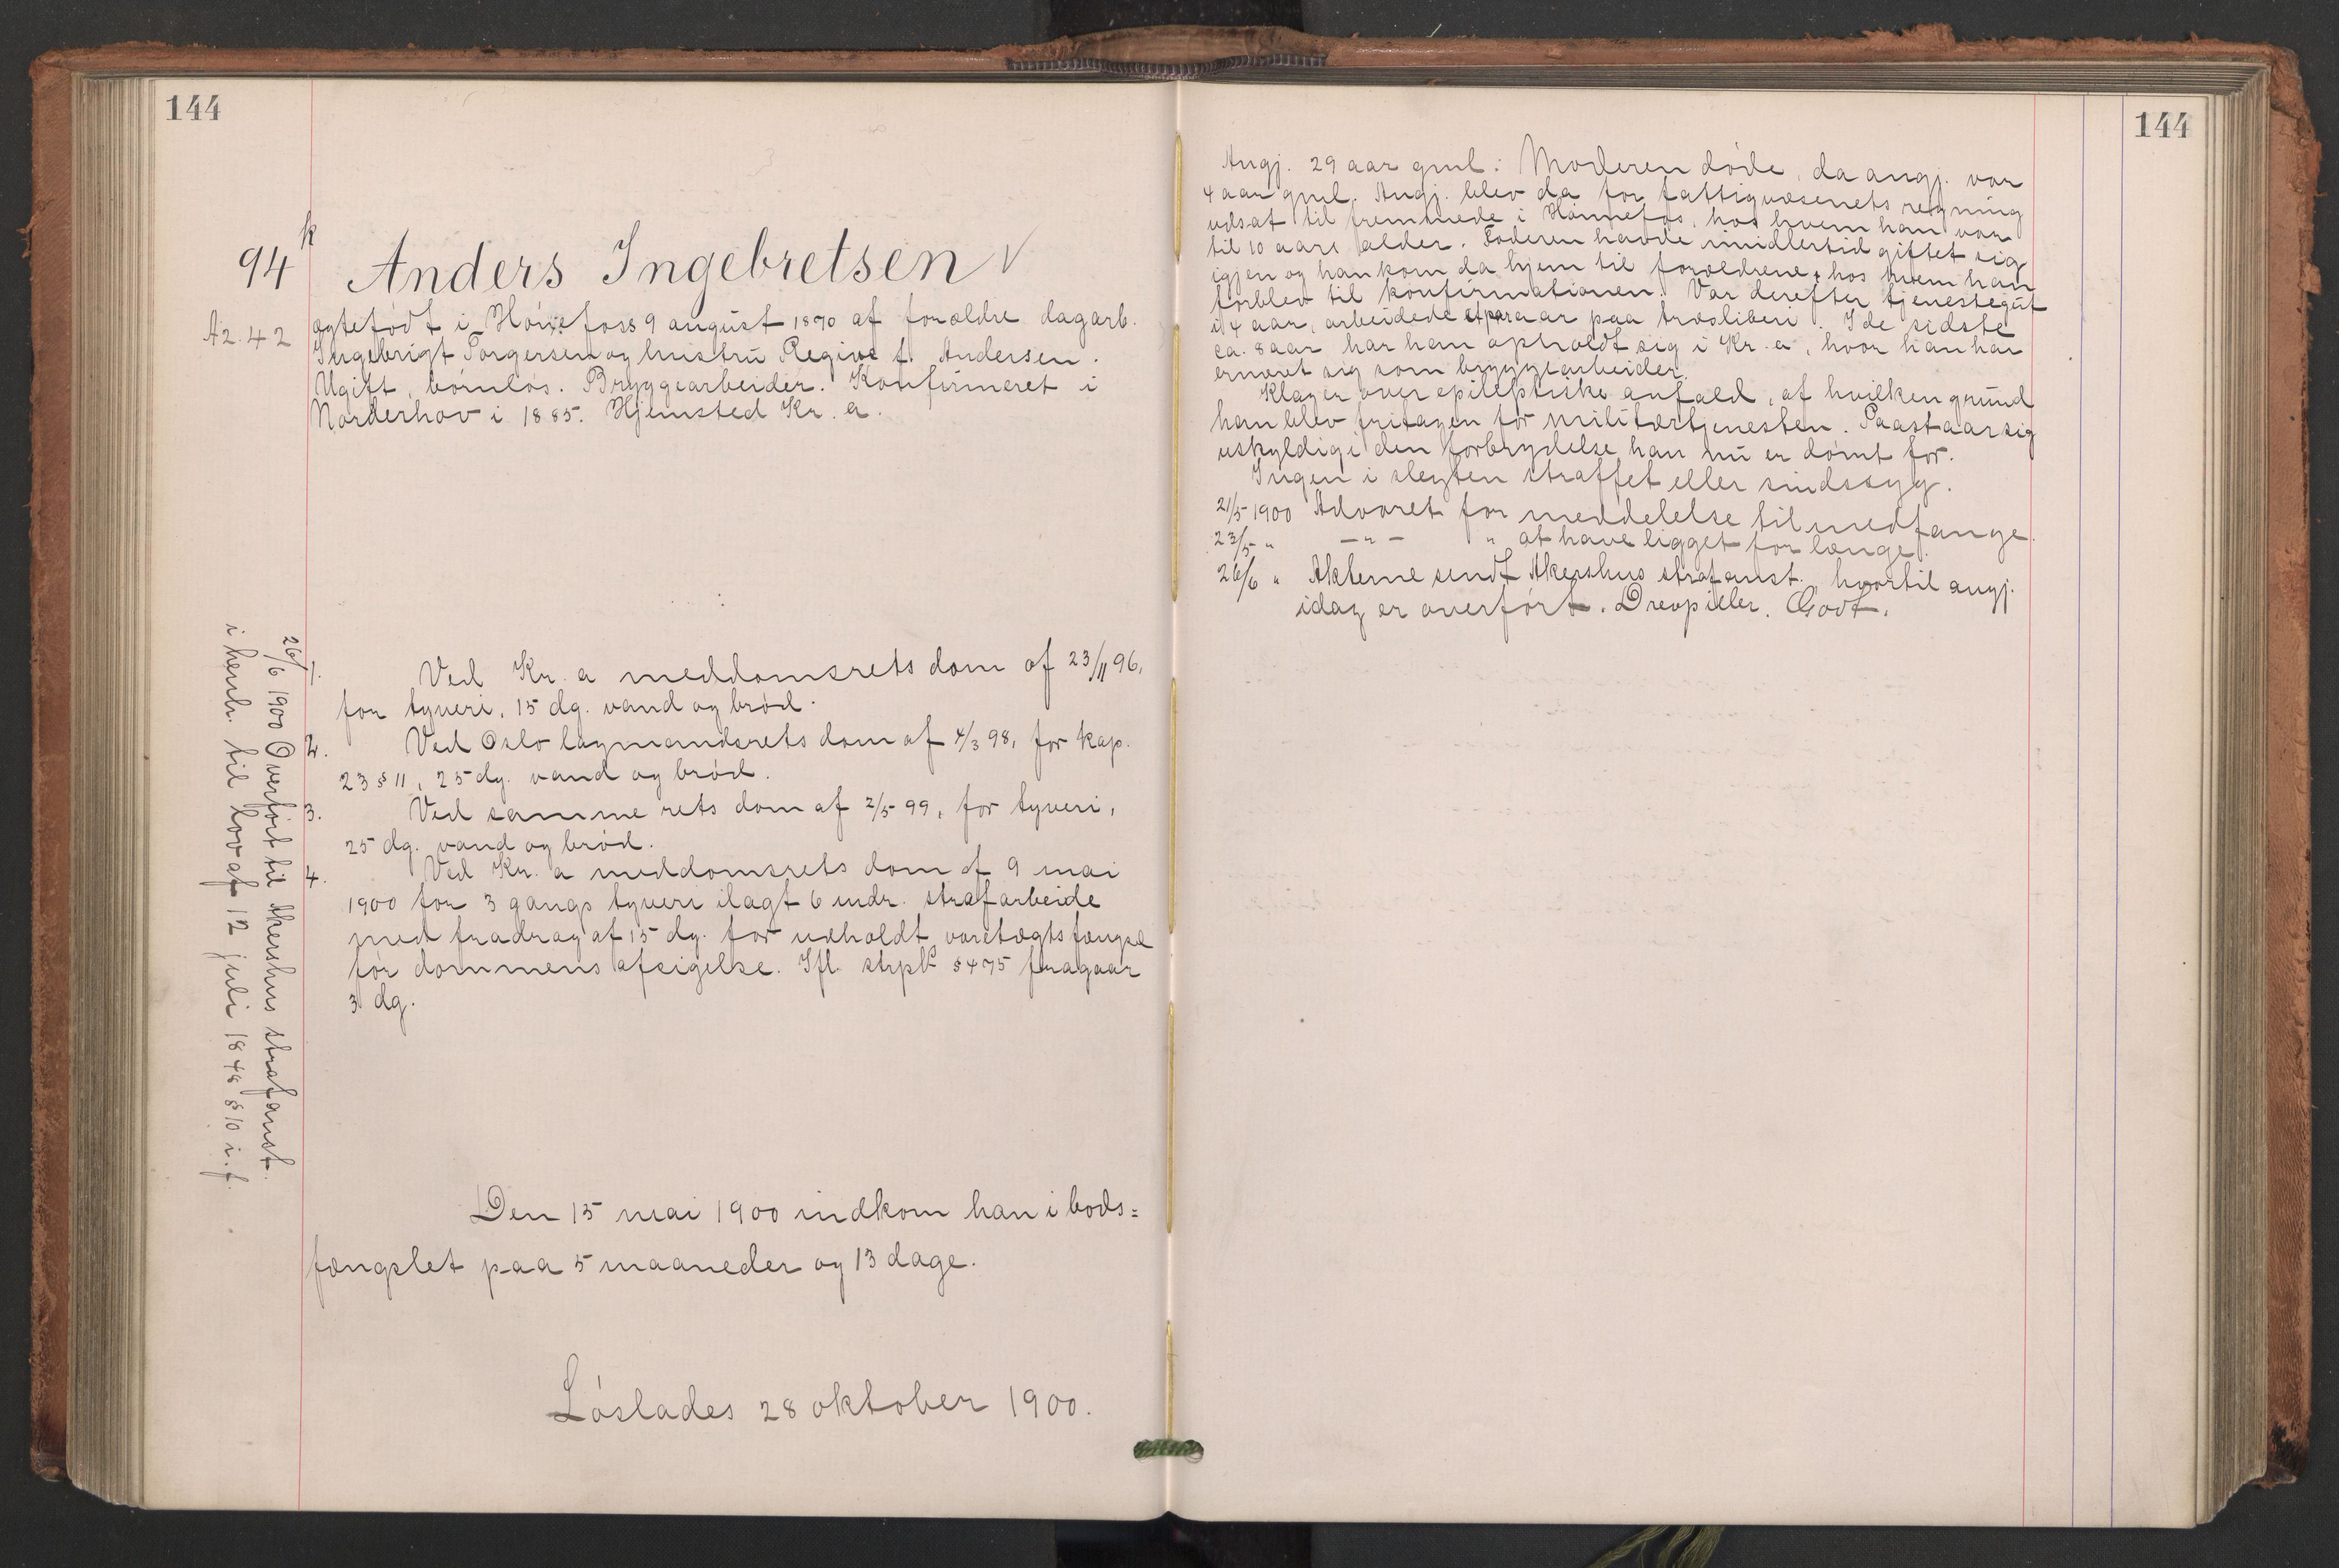 144
94 k Anders Ingebretsen ✓
A2. 42
ægtefödt i Hönefoss 9 august 1870 af forældre dagarb.
Ingebrigt Torgersen og hustru Regine f. Andersen.
Ugift, börnlös. Bryggearbeider. Konfirmeret i
Norderhov i 1885. Hjemsted Kr. a.
1. Ved Kr. a meddomsrets dom af 23/11 96,
for tyveri, 15 dg. vand og bröd.
2. Ved Oslo lagmandsrets dom af 4/3 98, for kap.
23 § 11, 25 dg. vand og bröd.
3. Ved samme rets dom af 2/5 99, for tyveri,
25 dg. vand og bröd.
4. Ved Kr. a meddomsrets dom af 9 mai
1900 for 3 gangs tyveri ilagt 6 mdr. strafarbeide
med fradrag af 15 dg. for udholdt varetægtsfængsel
för dommens afsigelse. Ifl. strpl. § 475 fragaar
3 dg.
26/6 1900 Overfört til Akershus strafanst.
i henh. til lov af 12 juli 1848 § 10 i. f.
Den 15 mai 1900 indkom han i bods=
fængslet paa 5 maaneder og 13 dage.
Löslades 28 oktober 1900.
144
Angj. 29 aar gml. Moderen döde, da angj. var
4 aar gml. Angj. blev da for fattigvæsenets regning
udsat til fremmede i Hönnefos, hos hvem han var
til 10 aars alder. Faderen havde imidlertid giftet sig
igjen og han kom da hjem til forældrene, hos hvem han
forblev til konfirmationen. Var derefter tjenestegut
i 4 aar, arbeidede et par aar paa træsliberi. I de sidste
ca. 8 aar har han opholdt sig i Kr. a, hvor han har
ernæret sig som bryggearbeider.
Klager over epileptiske anfald, af hvilken grund
han blev fritagen for militærtjenesten. Paastaar sig
uskyldig i den forbrydelse han nu er dömt for.
Ingen i slegten straffet eller sindssyg.
21/5 1900 Advaret for meddelelse til medfange.
23/5 " —"— " at have ligget for længe.
26/6 " Akterne sendt Akershus strafanst. hvortil angj.
idag er overfört. Drev piller. Godt.